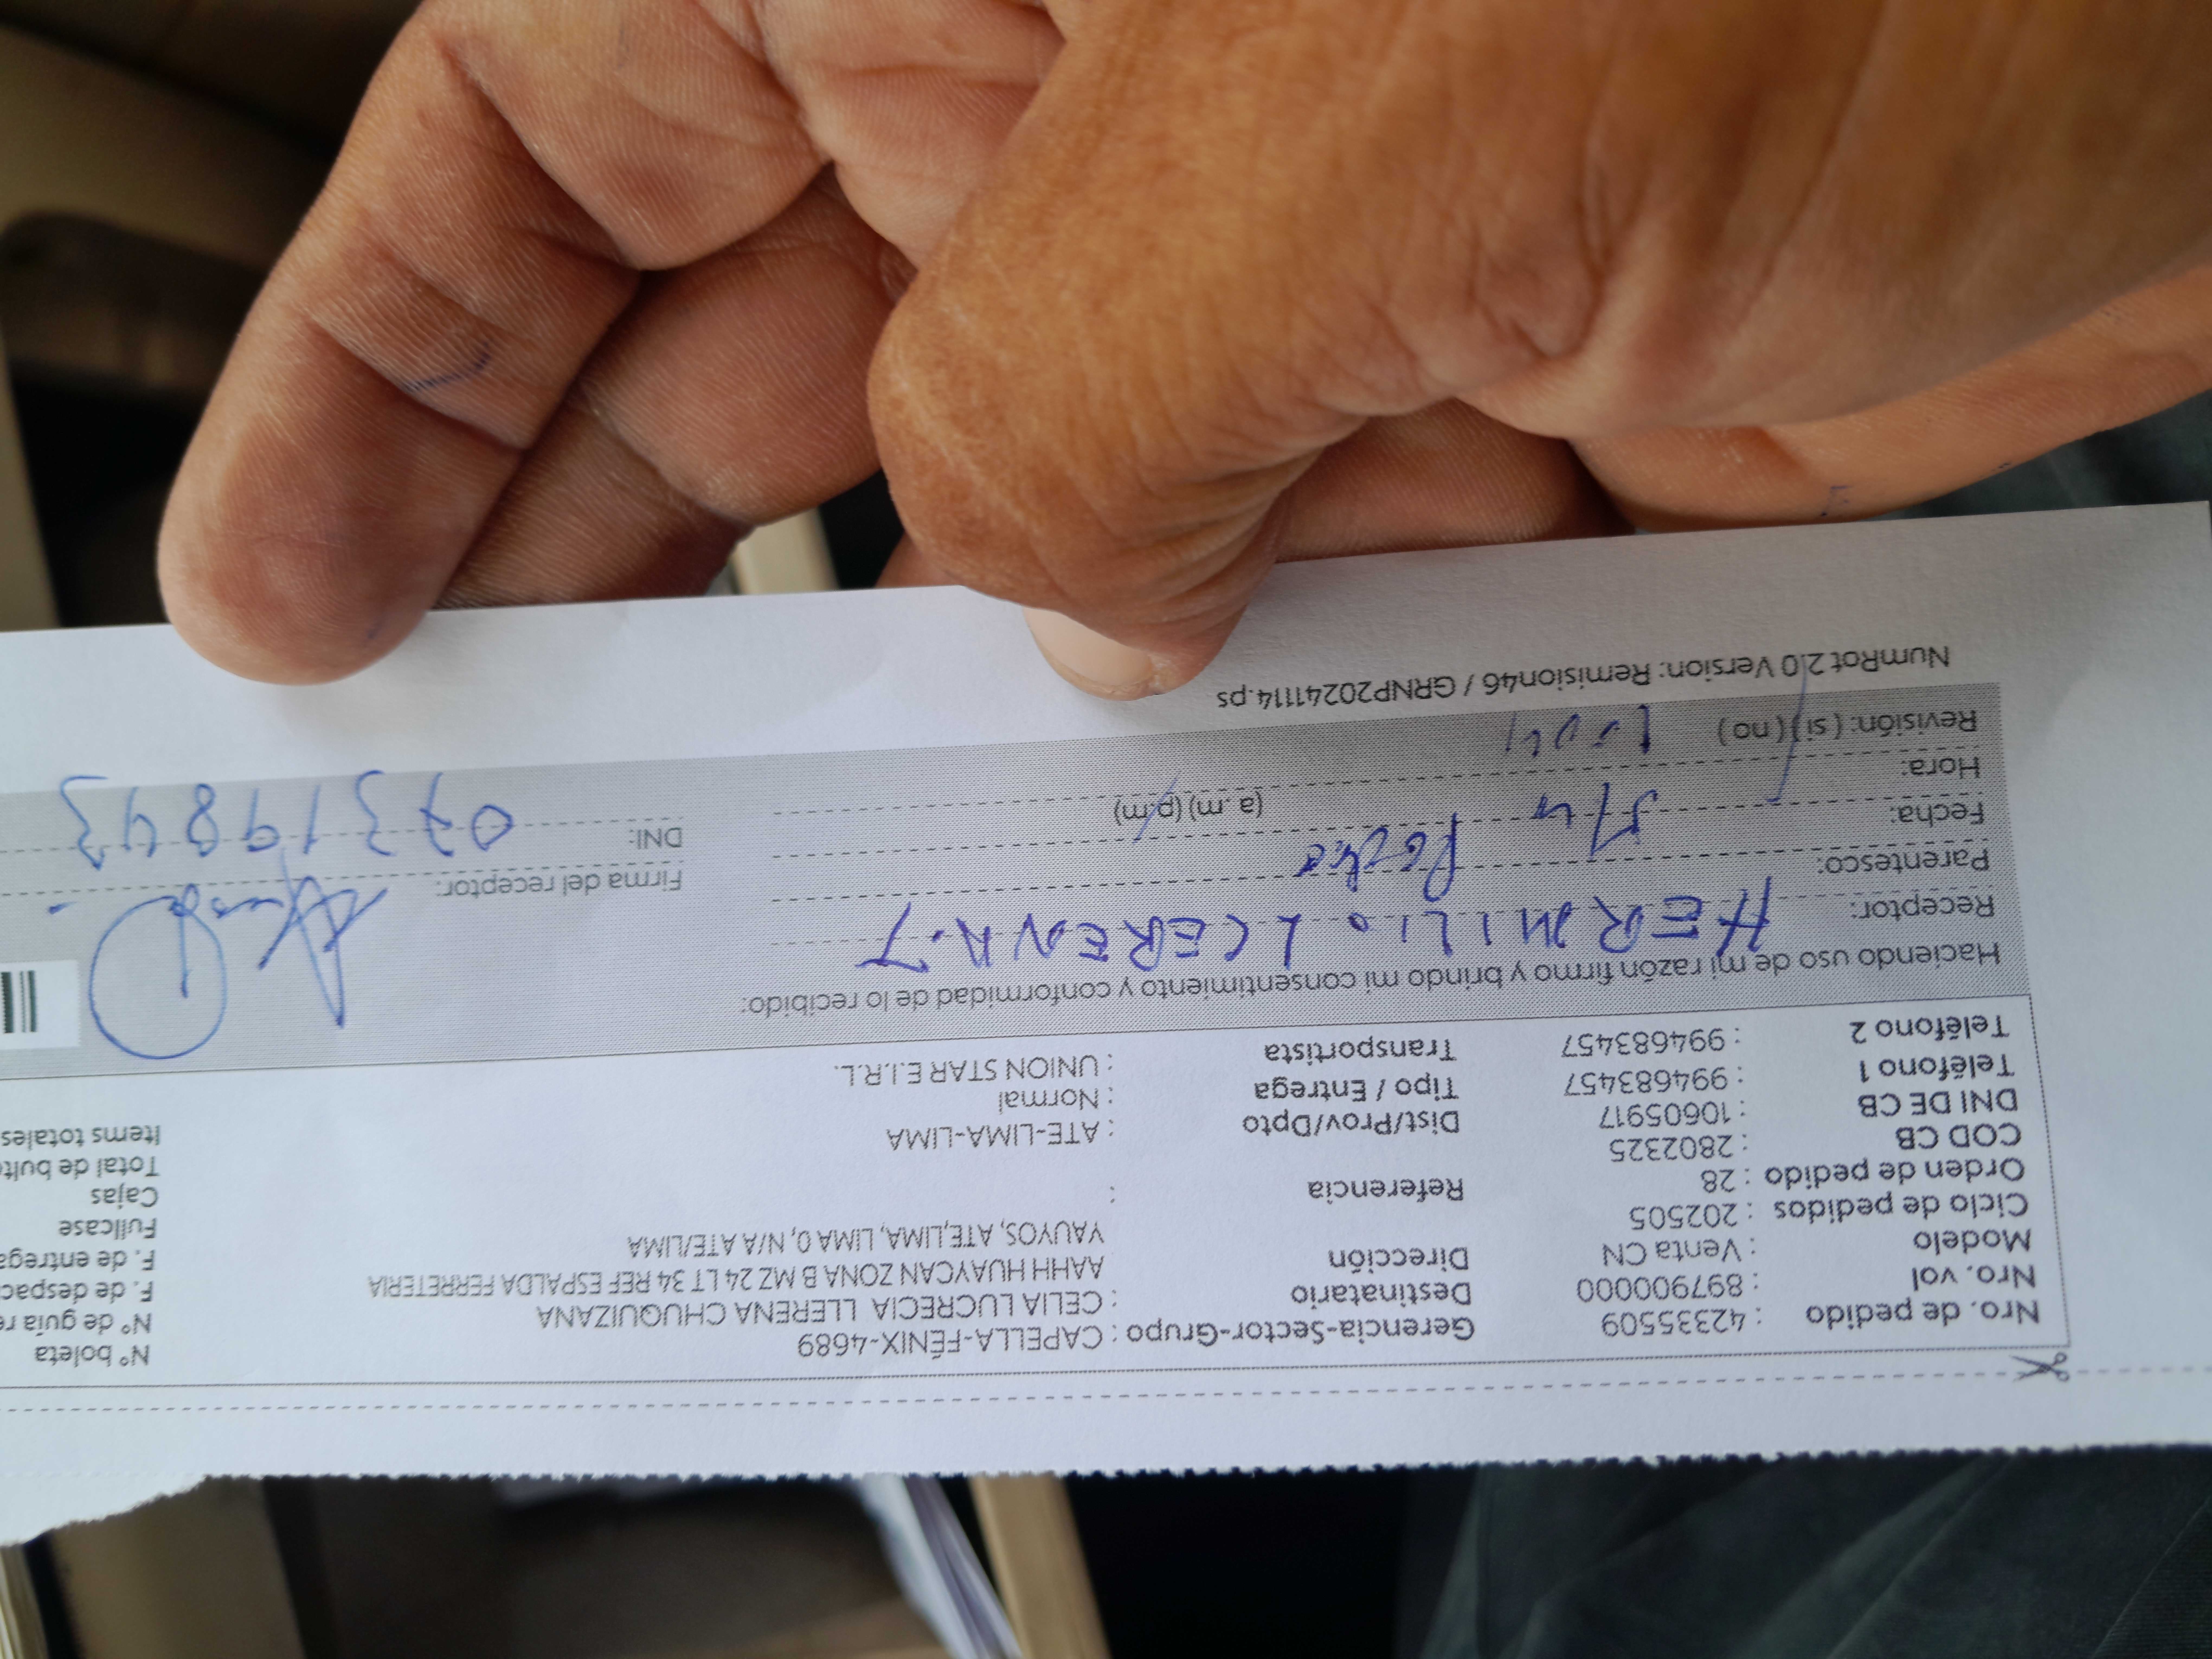 Nro. de pedido : 42335509 Gerencia-Sector-Grupo : CAPELLA-FÉNIX-4689 N° boleta
Nro. vol : 897900000 Destinatario : CELIA LUCRECIA LLERENA CHUQUIZANA N° de guía r
Modelo : Venta CN Dirección AAHH HUAYCAN ZONA B MZ 24 LT 34 REF ESPALDA FERRETERIA F. de despac
Ciclo de pedidos : 202505 YAUYOS, ATE,LIMA, LIMA 0, N/A ATE/LIMA F. de entrega
Orden de pedido : 28 Referencia : Fullcase
COD CB : 2802325 Cajas
DNI DE CB : 10605917 Dist/Prov/Dpto : ATE-LIMA-LIMA Total de bult
Teléfono 1 : 994683457 Tipo / Entrega : Normal Items totales
Teléfono 2 : 994683457 Transportista : UNION STAR E.I.R.L.
Haciendo uso de mi razón firmo y brindo mi consentimiento y conformidad de lo recibido:
Receptor: HERMILIO
Parentesco: Firma del receptor:
Fecha: DNI: 07319843
Hora: (a.m) (p.m)
Revisión: ( si ) ( no )
NumRot 2.0 Version: Remision46 / GRNP20241114.ps